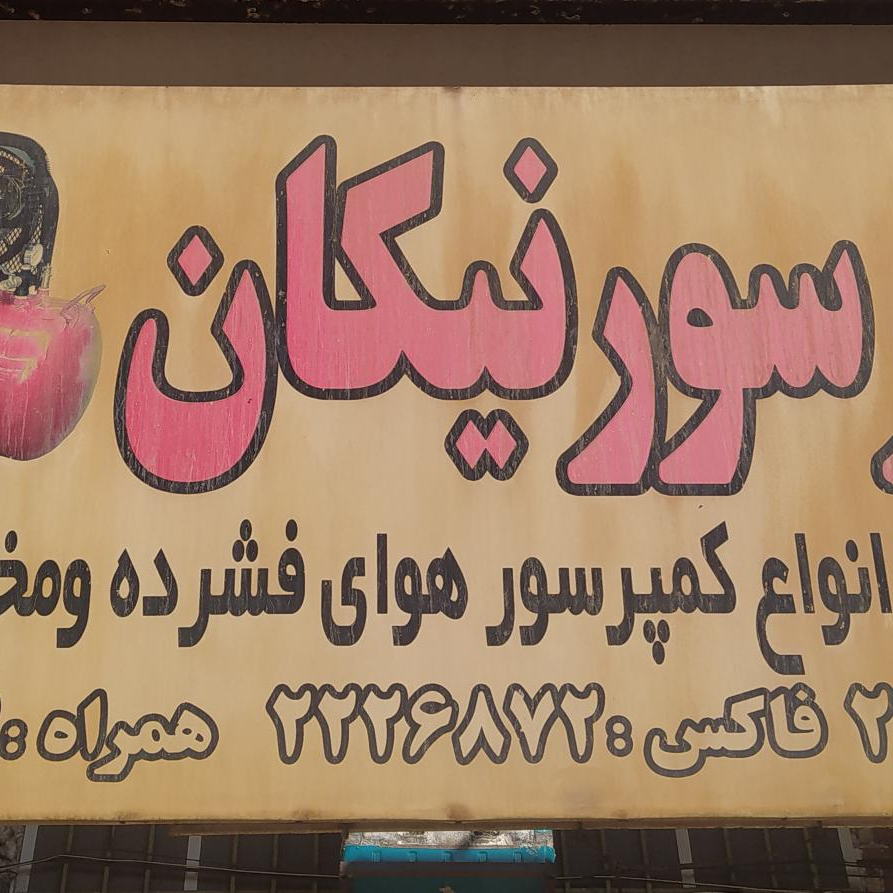 سور نیکان
انواع کمپرسور هوای فشرده ومخ
۲ فاکس : ۲۲۲۶۸۷۲ همراه :